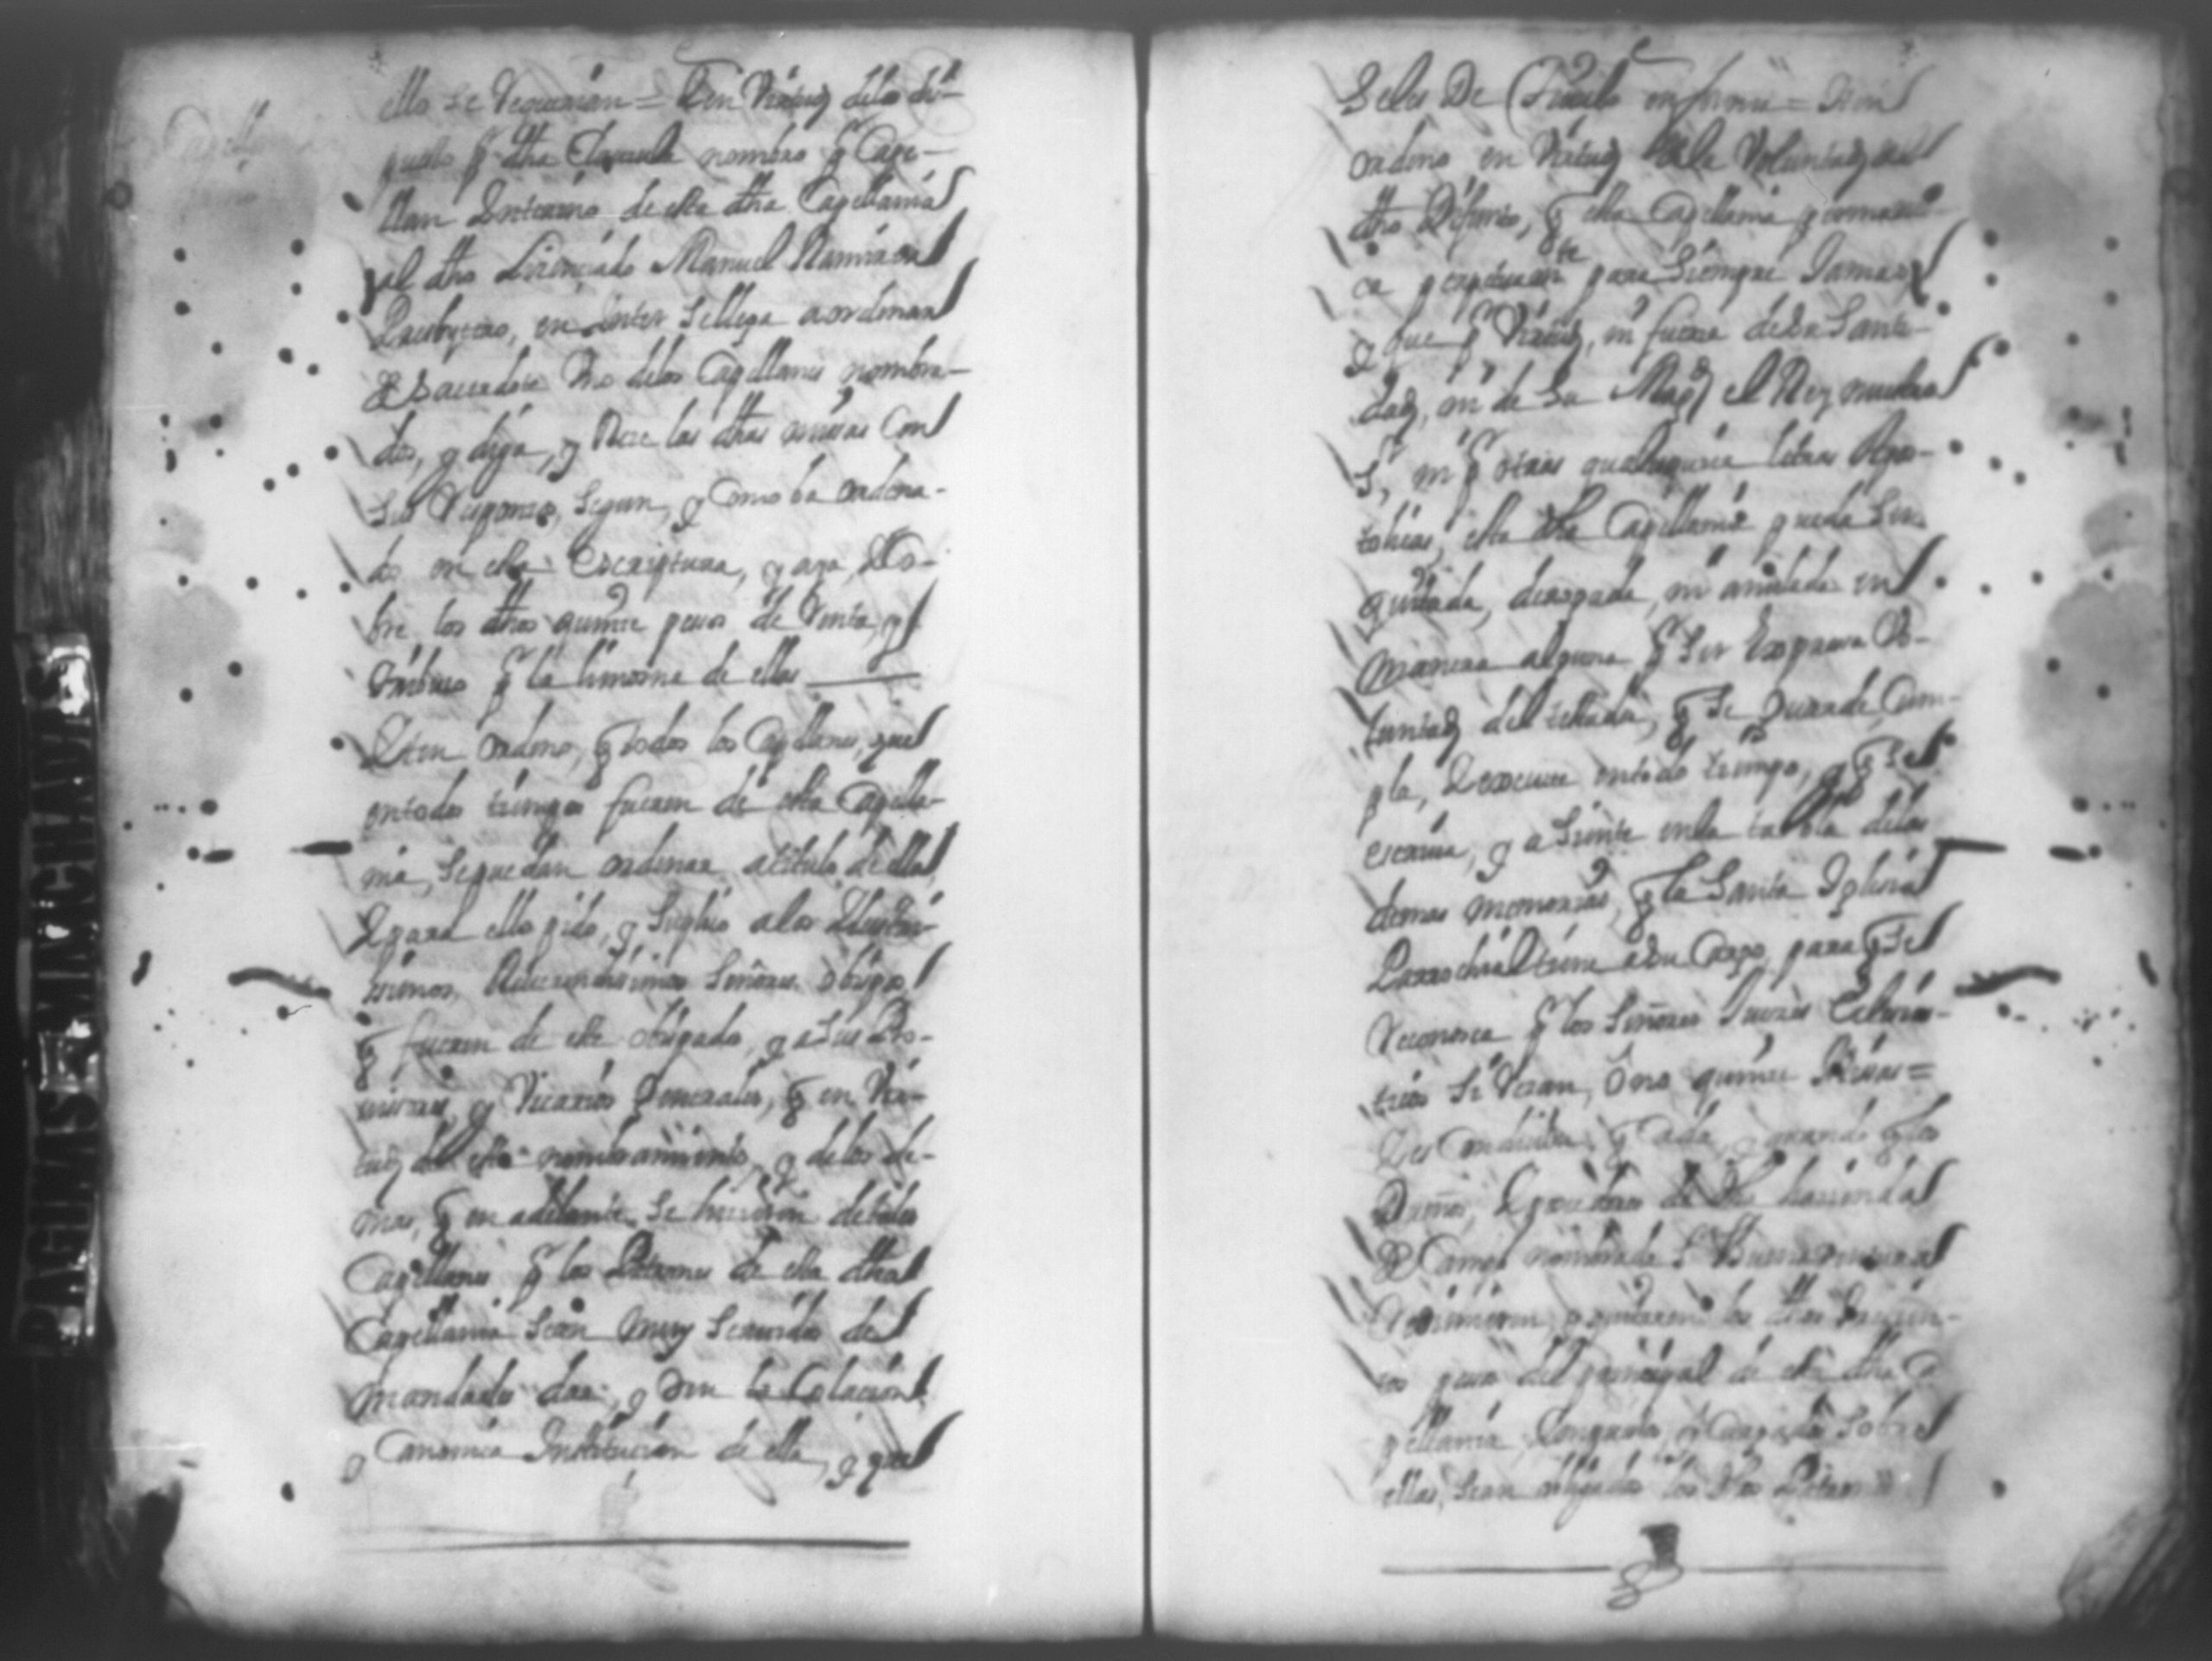 Capell
ella se requieran = Iten Virtud dela di-
puesto q̃ dha Clausula nombro q̃ Cape-
llan Interino de esta dha Capellania
al dho Licenciado Manuel Ramires
Presbytero, en Inter se llega a ordenar
de Sacerdote Uno delos Capellanes nombra-
dos, y diga, y Reze las dhas missas Con
sus responsos, segun, y Como ba ordena-
do en esta Escriptura, y aya, y Co-
bre los dhos quinze pesos de renta, y
q̃ la limosna de ellas
Iten ordeno, q̃ todos los Capellanes, que
entodos tiempos fueren de esta Capella-
nia, se puedan ordenar a titulo de ella
y para ello pido, y suplico a los Illustri-
simos, Reverendisimos Señores obispos
q̃ fueren de este obispado, y a sus Pro-
uisores, y Vicarios Generales, q̃ en Vir-
tud del este nombramiento, y delos de-
mas, q̃ en adelante se hizieren de tales
Capellanes q̃ los Patrones de esta dha
Capellania sean muy seruidos de
mandarles dar, y den la Colacion
y Canonica Institucion de ella, y que
Seles De Titulo en forma = Iten
ordeno en Virtud dela Voluntad del
dho Difunto, q̃ esta Capellania permanes-
ca perpetuamte para siempre Jamas
y que q̃ Virtud, ni fuerza de Su Santi-
dad, ni de Su Magd el Rey nuestro
Sr, ni q̃ otras qualesquiera letras Apos-
tolicas, esta dha Capellania pueda ser
quitada, derogada, ni anulada en
manera alguna q̃ ser Expresa Vo-
luntad del testador, q̃ se guarde Cum-
pla, y execute entodo tiempo, y q̃ se
escriua, y asiente enla tabla delas
demas memorias, q̃ la Santa Iglesia
Parrochial tiene a su Cargo para q̃ se
reconosca q̃ los Señores Juezes Eclesias-
ticos si rezan, o no quinze Missas =
Y es Condicion q̃ Cada, y quando q̃ los
Dueños, y poseedores de dha hacienda
de Campo nombrada S. Buenaventura
redimieren, y quitaren los dhos trecien-
tos pesos del principal de esta dha Ca-
pellania, Impuesto, y Cargado sobre
ellas, sean obligados los dhos Patrones